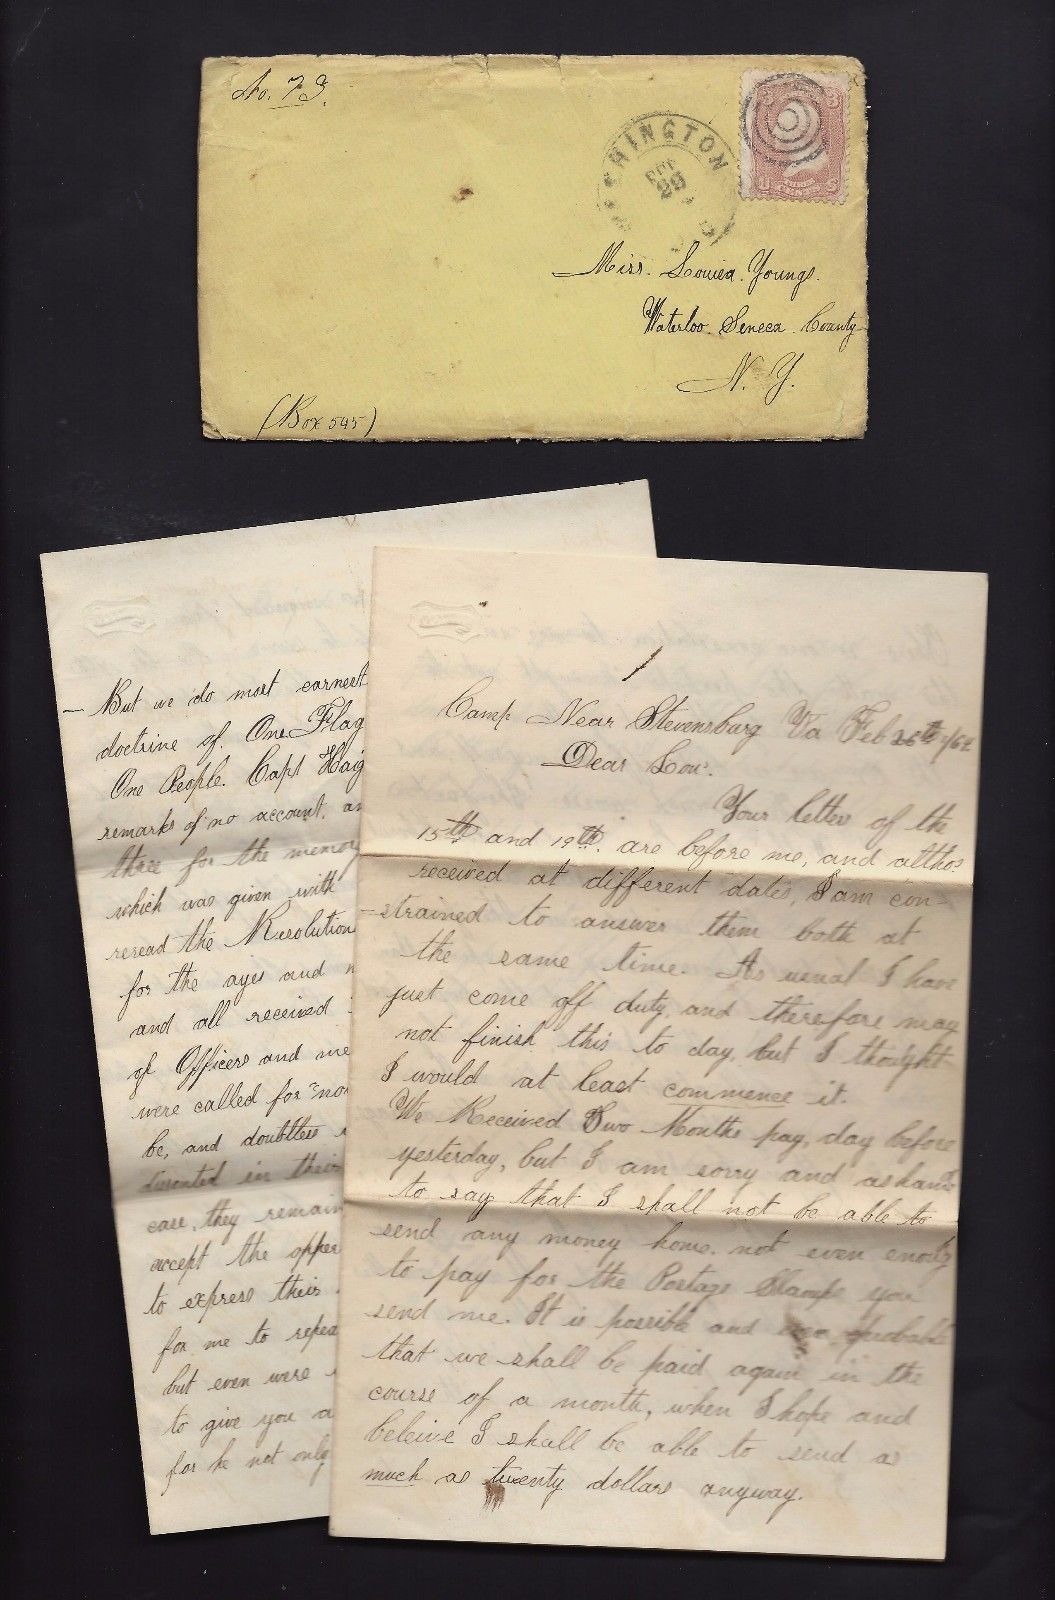 No. 73.
WASHINGTON
FEB
29
Miss. Louisa. Youngs.
Waterloo. Seneca. County
N. Y.
(Box 545)
— But we do most earnest
doctrine of. One Flag
One People. Capt Haig
remarks of no account, an
three for the memory
which was given with
reread the Resolution
for the ayes and n
and all received
of Officers and me
were called for "no
be, and doubtless
disented in their
case, they remain
accept the opper
to express their
for me to repea
but even were
to give you a
for he not only
1
Camp Near Stevensburg Va Feb 26th /64
Dear Lou'.
Your letter of the
15th and 19th. are before me, and altho.
received at different dates, I am con-
=strained to answer them both at
the same time. As usual I have
just come off duty, and therefore may
not finish this to day, but I thought
I would at least commence it.
We Received Two Months pay, day before
yesterday, but I am sorry and asham'd
to say that I shall not be able to
send any money home. not even enough
to pay for the Postage Stamps you
send me. It is possible and probable
that we shall be paid again in the
course of a month, when I hope and
beleive I shall be able to send as
much as twenty dollars anyway.